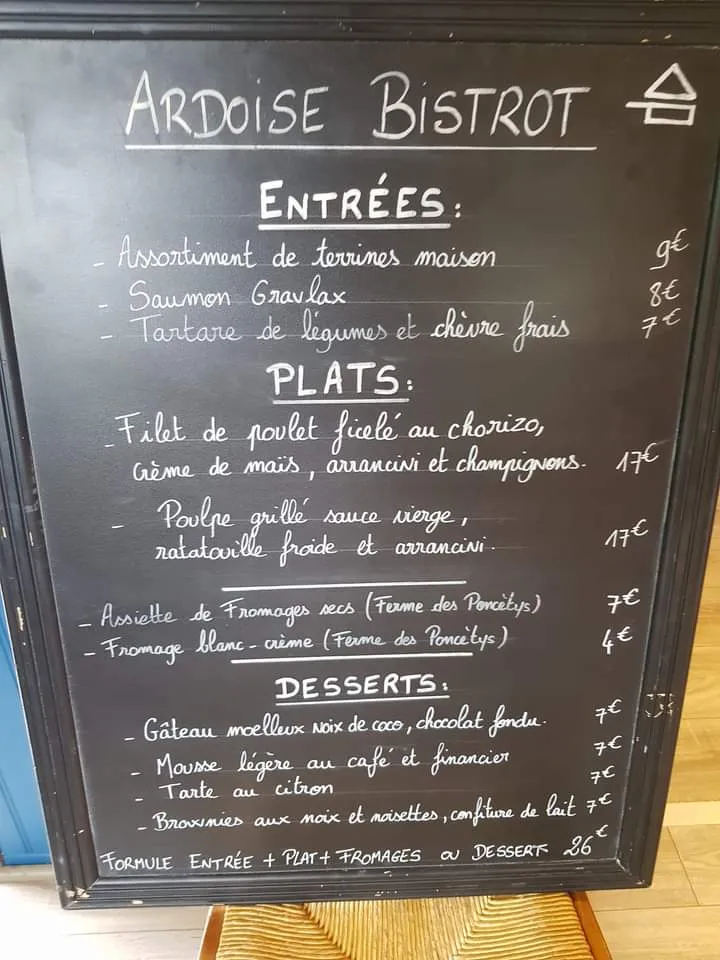 ARDOISE BISTROT
ENTRÉES:
- Assortiment de terrines maison 9€
- Saumon Gravlax 8€
- Tartare de légumes et chèvre frais 7€
PLATS:
- Filet de poulet ficelé au chorizo,
crème de maïs, arrancini et champignons. 17€
- Poulpe grillé sauce vierge,
ratatouille froide et arrancini. 17€
- Assiette de Fromages secs (Ferme des Poncètys) 7€
- Fromage blanc-crème (Ferme des Poncètys) 4€
DESSERTS:
- Gâteau moelleux noix de coco, chocolat fondu. 7€
- Mousse légère au café et financier 7€
- Tarte au citron 7€
- Brownies aux noix et noisettes, confiture de lait 7€
FORMULE ENTRÉE + PLAT + FROMAGES OU DESSERT 26€